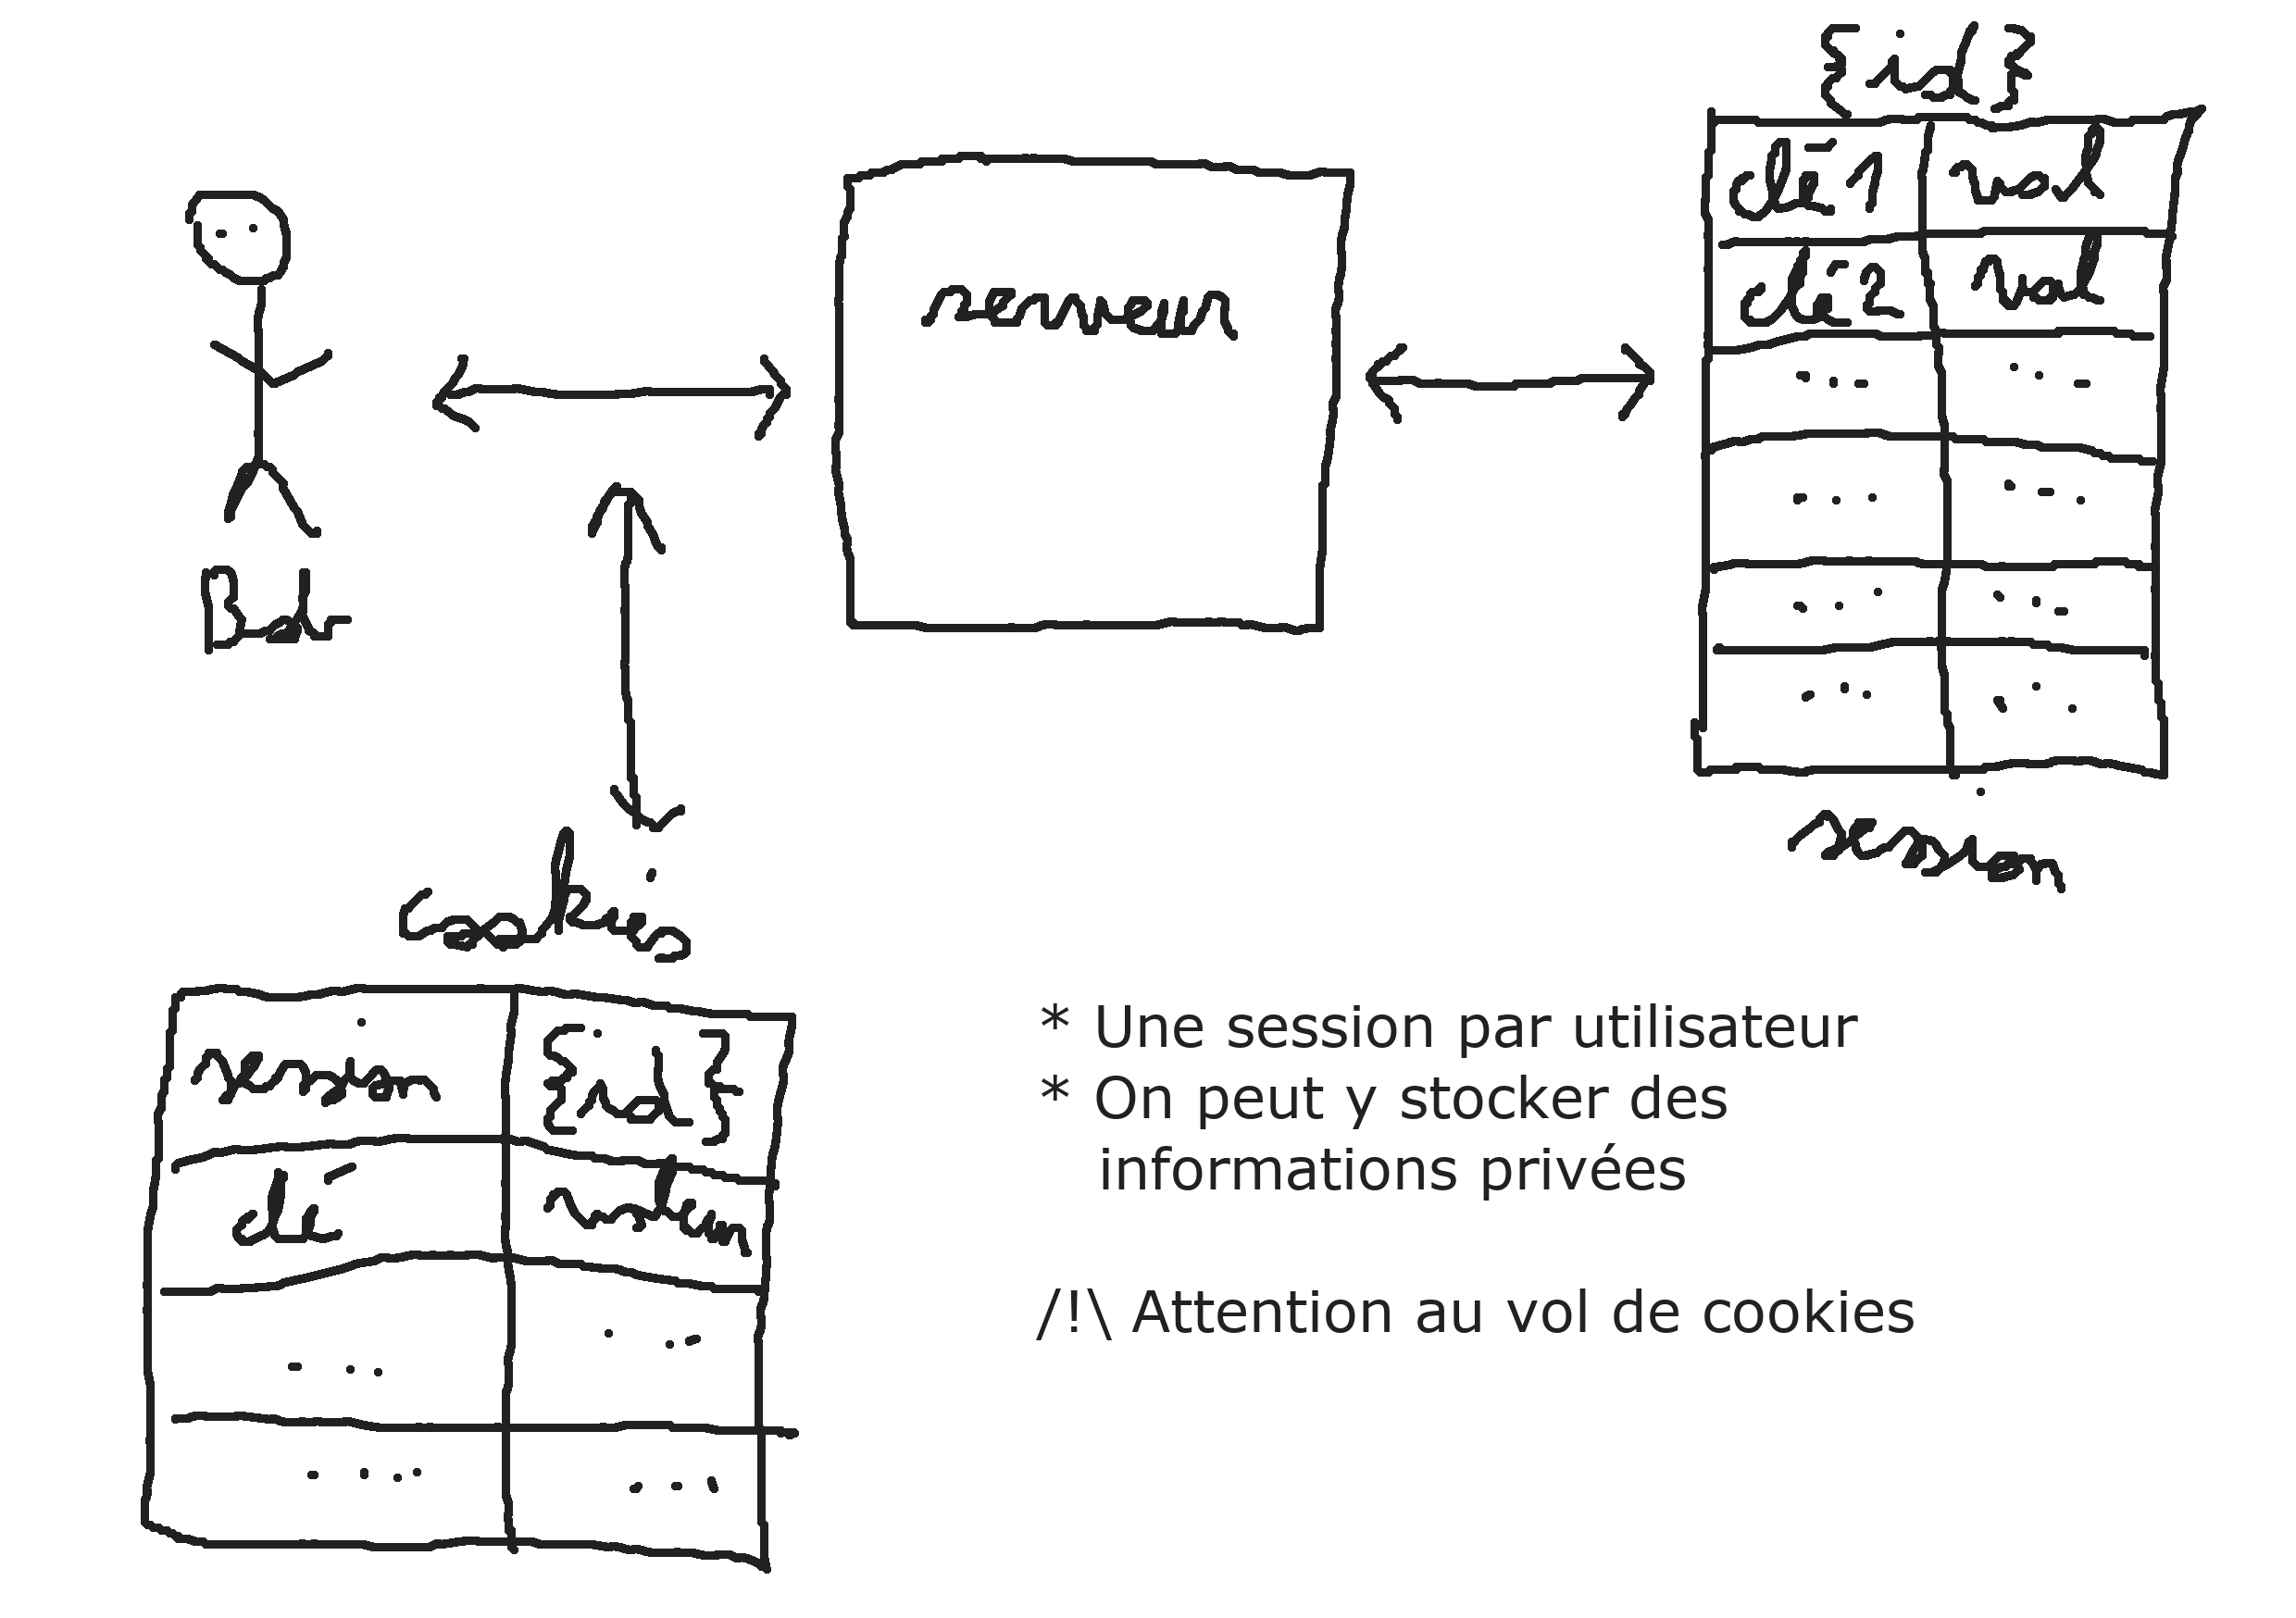 {id}
clé 1 val
clé 2 val
... ...
... ...
... ...
... ...
session
serveur
Bob
cookies
session {id}
clé valeur
... ...
.... ...
* Une session par utilisateur
* On peut y stocker des
informations privées
/!\ Attention au vol de cookies